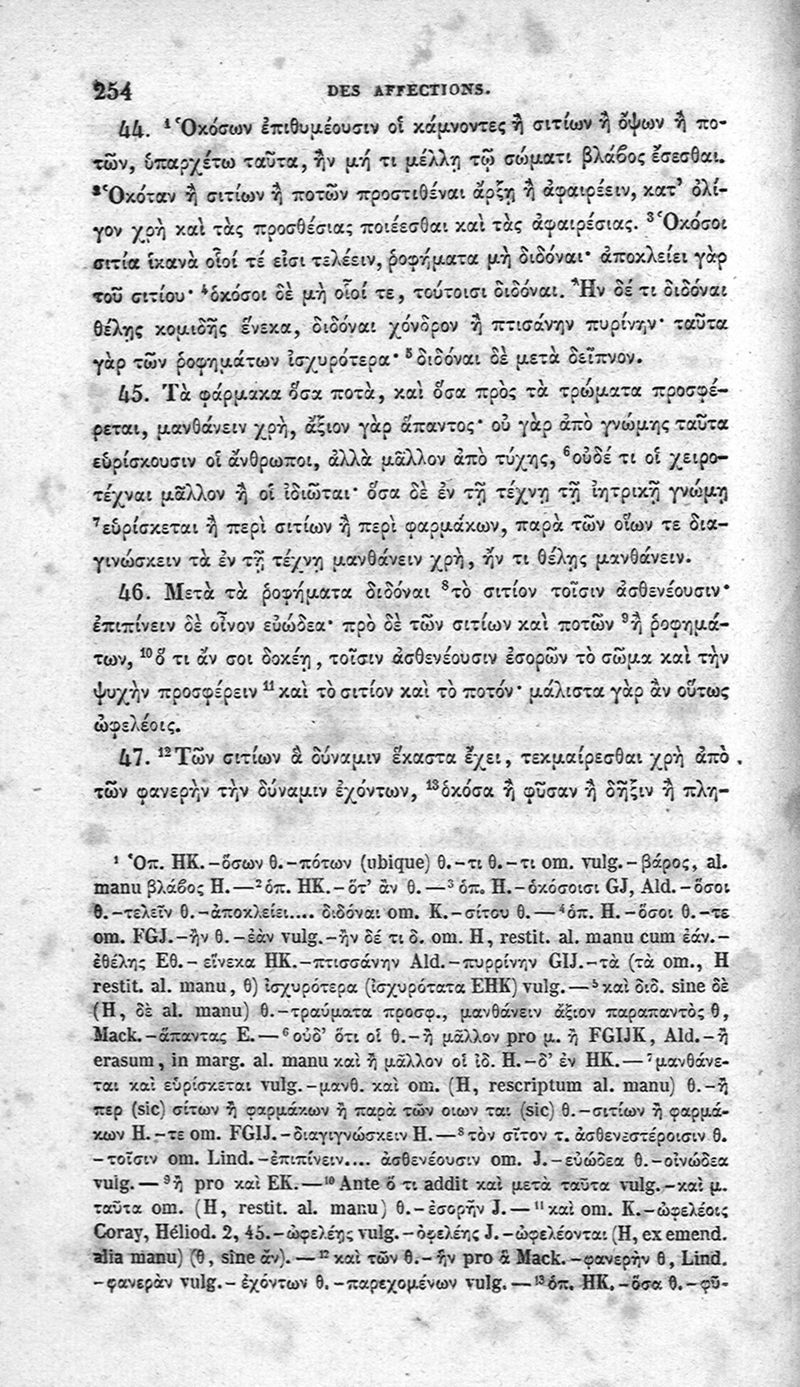 254 DES AFFECTIONS.
44. ¹Ὁκόσων ἐπιθυμέουσιν οἱ κάμνοντες ἢ σιτίων ἢ ὄψων ἢ πο-
τῶν, ὑπαρχέτω ταῦτα, ἢν μή τι μέλλῃ τῷ σώματι βλάβος ἔσεσθαι.
²Ὁκόταν ἢ σιτίων ἢ ποτῶν προστιθέναι ἄρξῃ ἢ ἀφαιρέειν, κατ’ ὀλί-
γον χρὴ καὶ τὰς προσθέσιας ποιέεσθαι καὶ τὰς ἀφαιρέσιας. ³Ὁκόσοι
σιτία ἱκανὰ οἷοί τέ εἰσι τελέειν, ῥοφήματα μὴ διδόναι· ἀποκλείει γὰρ
τοῦ σιτίου· ⁴ὁκόσοι δὲ μὴ οἷοί τε, τούτοισι διδόναι. Ἢν δέ τι διδόναι
θέλῃς κομιδῆς ἕνεκα, διδόναι χόνδρον ἢ πτισάνην πυρίνην· ταῦτα
γὰρ τῶν ῥοφημάτων ἰσχυρότερα· ⁵διδόναι δὲ μετὰ δεῖπνον.
45. Τὰ φάρμακα ὅσα ποτὰ, καὶ ὅσα πρὸς τὰ τρώματα προσφέ-
ρεται, μανθάνειν χρὴ, ἄξιον γὰρ ἅπαντος· οὐ γὰρ ἀπὸ γνώμης ταῦτα
εὑρίσκουσιν οἱ ἄνθρωποι, ἀλλὰ μᾶλλον ἀπὸ τύχης, ⁶οὐδέ τι οἱ χειρο-
τέχναι μᾶλλον ἢ οἱ ἰδιῶται· ὅσα δὲ ἐν τῇ τέχνῃ τῇ ἰητρικῇ γνώμῃ
⁷εὑρίσκεται ἢ περὶ σιτίων ἢ περὶ φαρμάκων, παρὰ τῶν οἵων τε δια-
γινώσκειν τὰ ἐν τῇ τέχνῃ μανθάνειν χρὴ, ἤν τι θέλῃς μανθάνειν.
46. Μετὰ τὰ ῥοφήματα διδόναι ⁸τὸ σιτίον τοῖσιν ἀσθενέουσιν·
ἐπιπίνειν δὲ οἶνον εὐώδεα· πρὸ δὲ τῶν σιτίων καὶ ποτῶν ⁹ἢ ῥοφημά-
των, ¹⁰ὅ τι ἄν σοι δοκέῃ, τοῖσιν ἀσθενέουσιν ἐσορῶν τὸ σῶμα καὶ τὴν
ψυχὴν προσφέρειν ¹¹καὶ τὸ σιτίον καὶ τὸ ποτόν· μάλιστα γὰρ ἂν οὕτως
ὠφελέοις.
47. ¹²Τῶν σιτίων ἃ δύναμιν ἕκαστα ἔχει, τεκμαίρεσθαι χρὴ ἀπὸ
τῶν φανερὴν τὴν δύναμιν ἐχόντων, ¹³ὁκόσα ἢ φῦσαν ἢ δῆξιν ἢ πλη-
¹ Ὁπ. HK.–ὅσων θ.–πότων (ubique) θ.–τι θ.–τι om. vulg.–βάρος, al.
manu βλάβος H.—²ὁπ. HK.–ὅτ’ ἂν θ.—³ὁπ. H.–ὁκόσοισι GJ, Ald.–ὅσοι
θ.–τελεῖν θ.–ἀποκλείει.... διδόναι om. K.–σίτου θ.—⁴ὁπ. H.–ὅσοι θ.–τε
om. FGJ.–ἢν θ.–ἐὰν vulg.–ἢν δέ τι δ. om. H, restit. al. manu cum ἐάν.–
ἐθέλῃς Eθ.–εἵνεκα HK.–πτισσάνην Ald.–πυρρίνην GIJ.–τὰ (τὰ om., H
restit. al. manu, θ) ἰσχυρότερα (ἰσχυρότατα EHK) vulg.—⁵καὶ διδ. sine δὲ
(H, δὲ al. manu) θ.–τραύματα προσφ., μανθάνειν ἄξιον παραπαντὸς θ,
Mack.–ἅπαντας E.—⁶οὐδ’ ὅτι οἱ θ.–ἢ μᾶλλον pro μ. ἢ FGIJK, Ald.–ἢ
erasum, in marg. al. manu καὶ ἢ μᾶλλον οἱ ἰδ. H.–δ’ ἐν HK.—⁷μανθάνε-
ται καὶ εὑρίσκεται vulg.–μανθ. καὶ om. (H, rescriptum al. manu) θ.–ἢ
περ (sic) σίτων ἢ φαρμάκων ἢ παρὰ τῶν οιων ται (sic) θ.–σιτίων ἢ φαρμά-
κων H.–τε om. FGIJ.–διαγιγνώσκειν H.—⁸τὸν σῖτον τ. ἀσθενεστέροισιν θ.
–τοῖσιν om. Lind.–ἐπιπίνειν.... ἀσθενέουσιν om. J.–εὐώδεα θ.–οἰνώδεα
vulg.—⁹ἢ pro καὶ EK.—¹⁰Ante ὅ τι addit καὶ μετὰ ταῦτα vulg.–καὶ μ.
ταῦτα om. (H, restit. al. manu) θ.–ἐσορῇν J.—¹¹καὶ om. K.–ὠφελέοις
Coray, Héliod. 2, 45.–ὠφελέῃς vulg.–ὀφελέῃς J.–ὠφελέονται (H, ex emend.
alia manu) (θ, sine ἄν).—¹²καὶ τῶν θ.–ἣν pro ἃ Mack.–φανερὴν θ, Lind.
–φανερὰν vulg.–ἐχόντων θ.–παρεχομένων vulg.—¹³ὁπ. HK.–ὅσα θ.–φῦ-